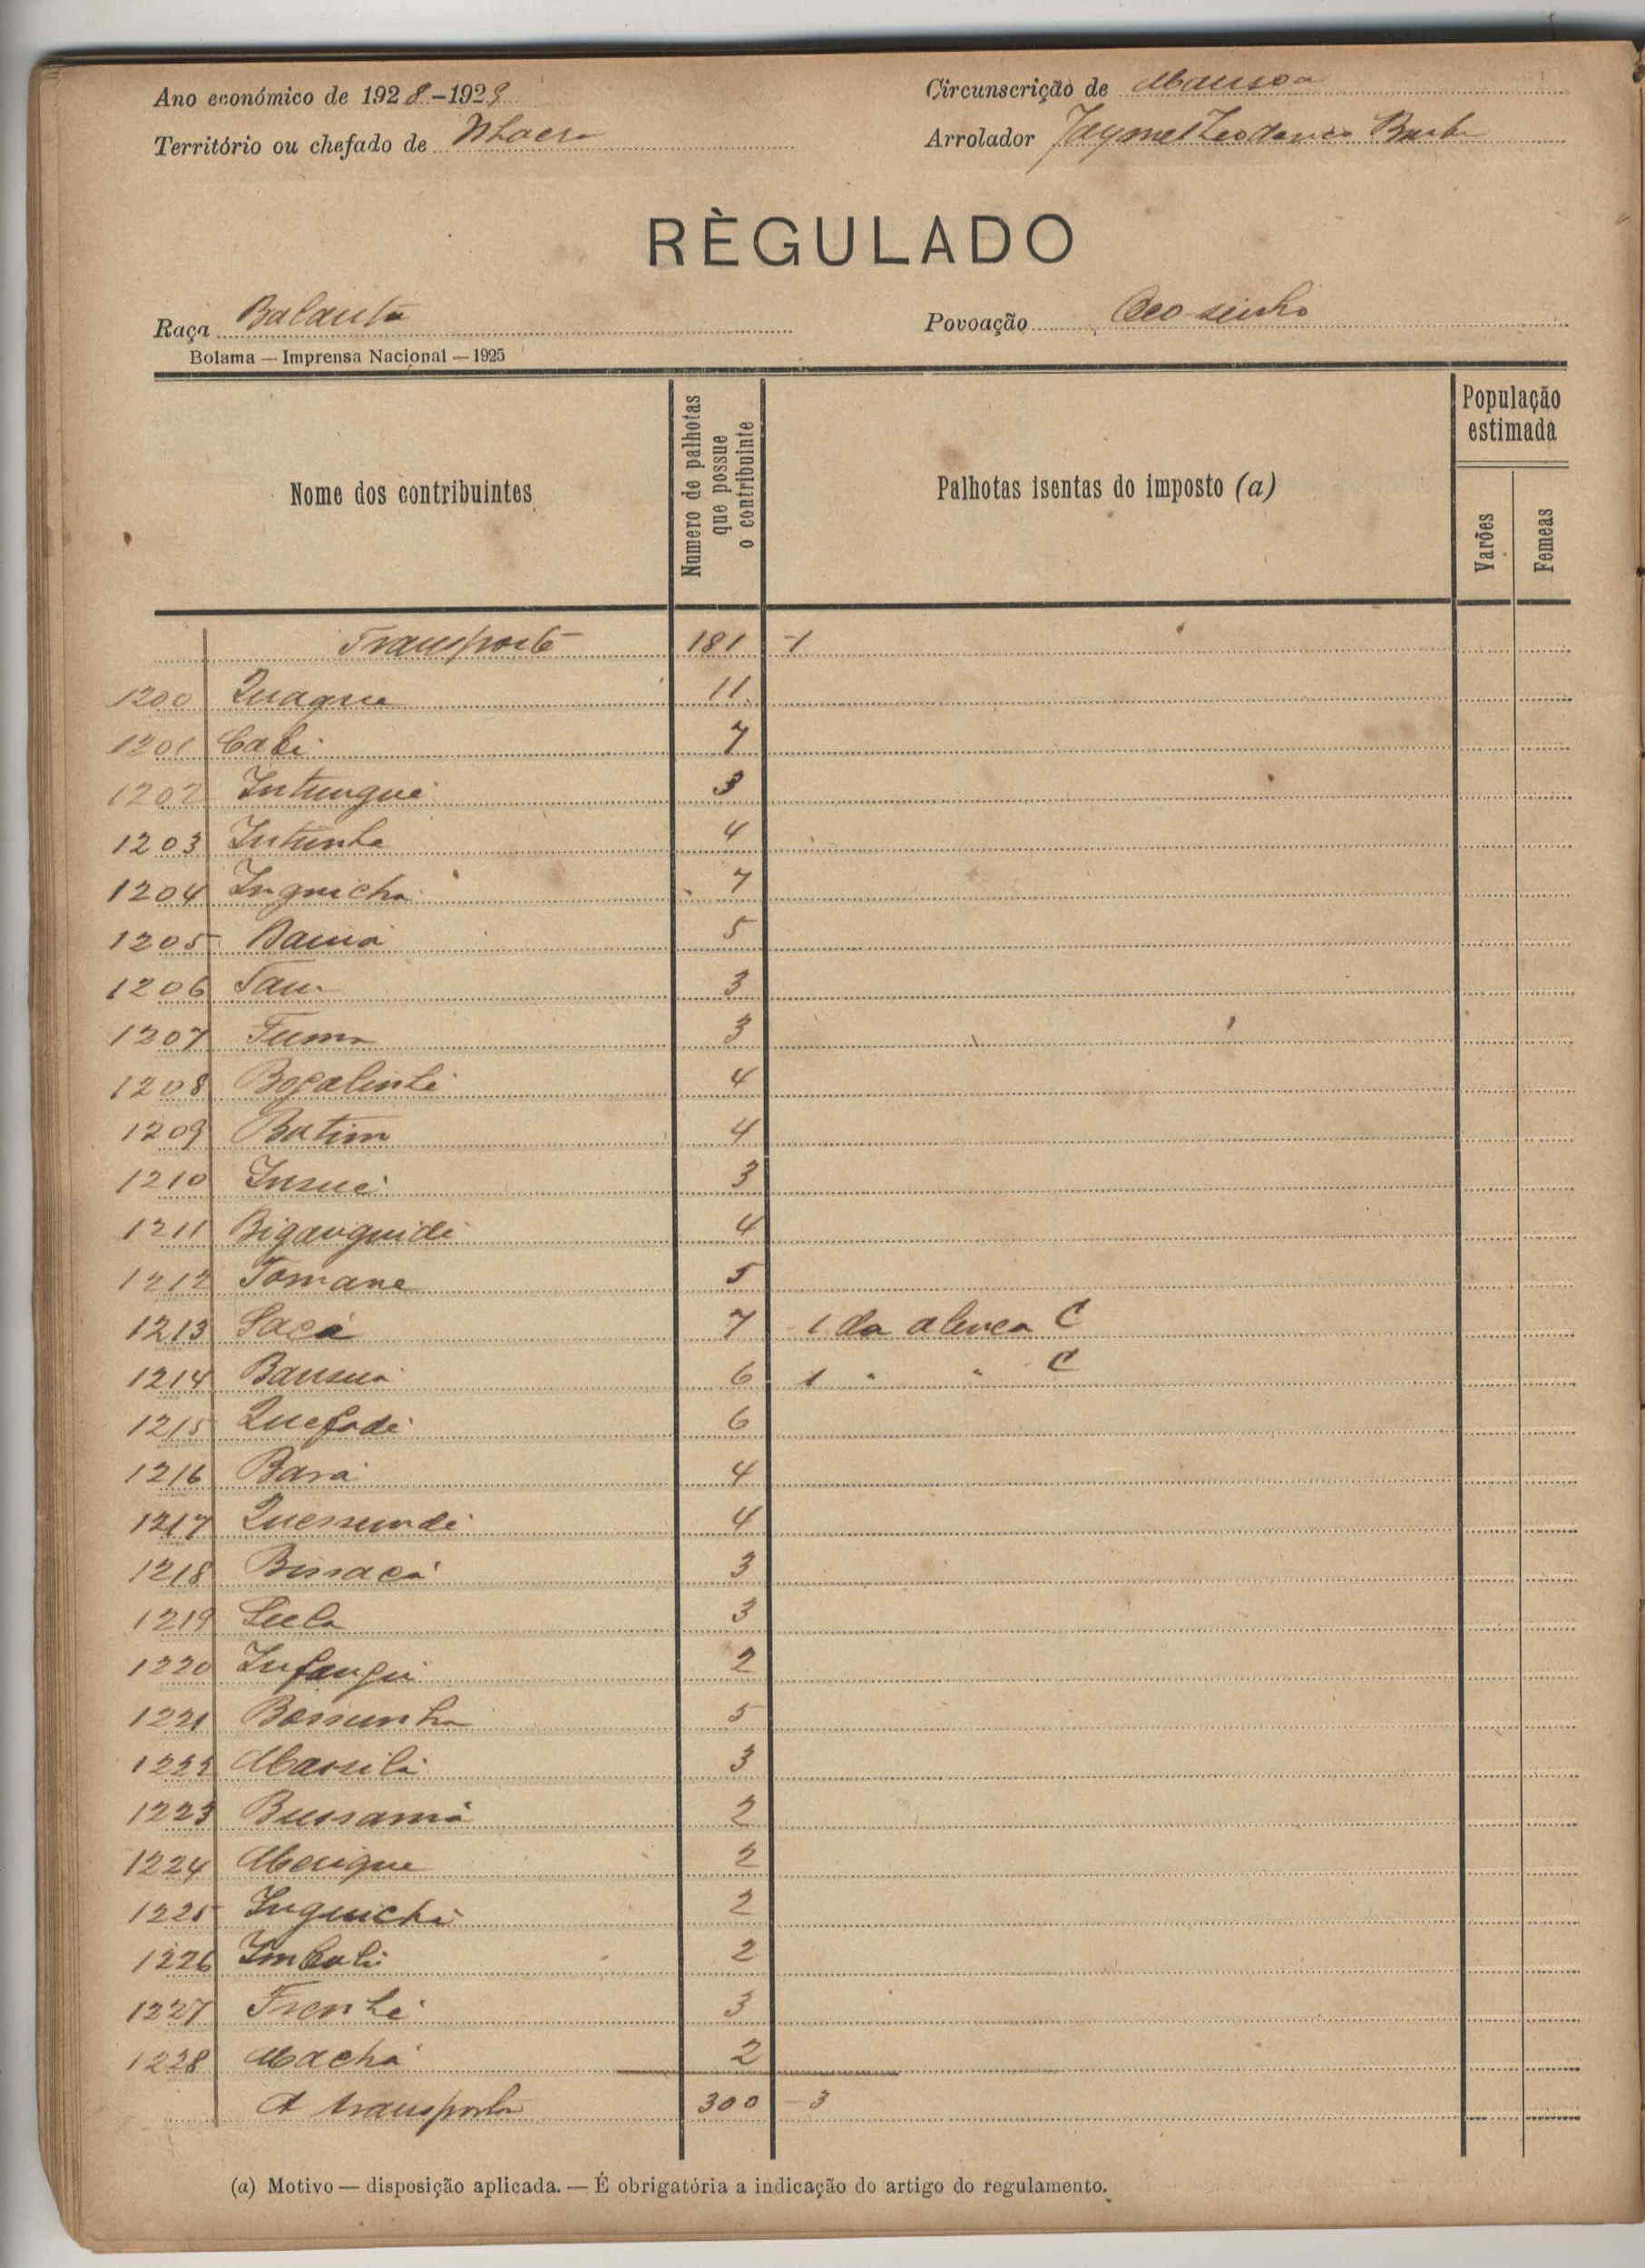 Ano económico de 1928-1929
Circunscrição de Mansoa
Território ou chefado de Nhacra
Arrolador Jayme
RÈGULADO
Raça Balanta
Povoação
Bolama — Imprensa Nacional — 1925
Nome dos contribuintes
Numero de palhotas que possue o contribuinte
Palhotas isentas do imposto (a)
População estimada
Varões
Femeas
Transporte 181 -1
1200 Quaque 11
1201 Cabi 7
1202 Intungué 3
1203 Intunha 4
1204 Inguicha 7
1205 5
1206 3
1207 Tuma 3
1208 4
1209 Batim 4
1210 Insué 3
1211 Biganguidi 4
1212 Tomane 5
1213 Sacá 7 1 da C
1214 Bansua 6 1 " " C
1215 Quefade 6
1216 Bará 4
1217 Quessundé 4
1218 Bissacá 3
1219 Sula 3
1220 2
1221 Bossunha 5
1222 3
1223 Bussamá 2
1224 2
1225 Inguichi 2
1226 2
1227 3
1228 Machá 2
A transportar 300 - 3
(a) Motivo — disposição aplicada. — É obrigatória a indicação do artigo do regulamento.